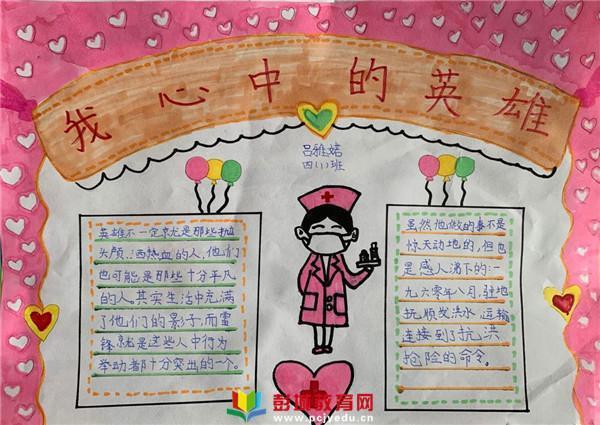 我心中的英雄
吕雅婧
四(1)班
英雄不一定就是那些抛
头颅、洒热血的人,他们
也可能是那些十分平凡
的人。其实生活中充满
了他们的影子,而雷
锋就是这些人中行为
举动都十分突出的一个。
虽然他做的事不是
惊天动地的,但也
是感人滴下的:一
九六零年八月,驻地
抚顺发洪水,运输
连接到了抗洪
抢险的命令。
彭城教育网
www.pcjyedu.cn